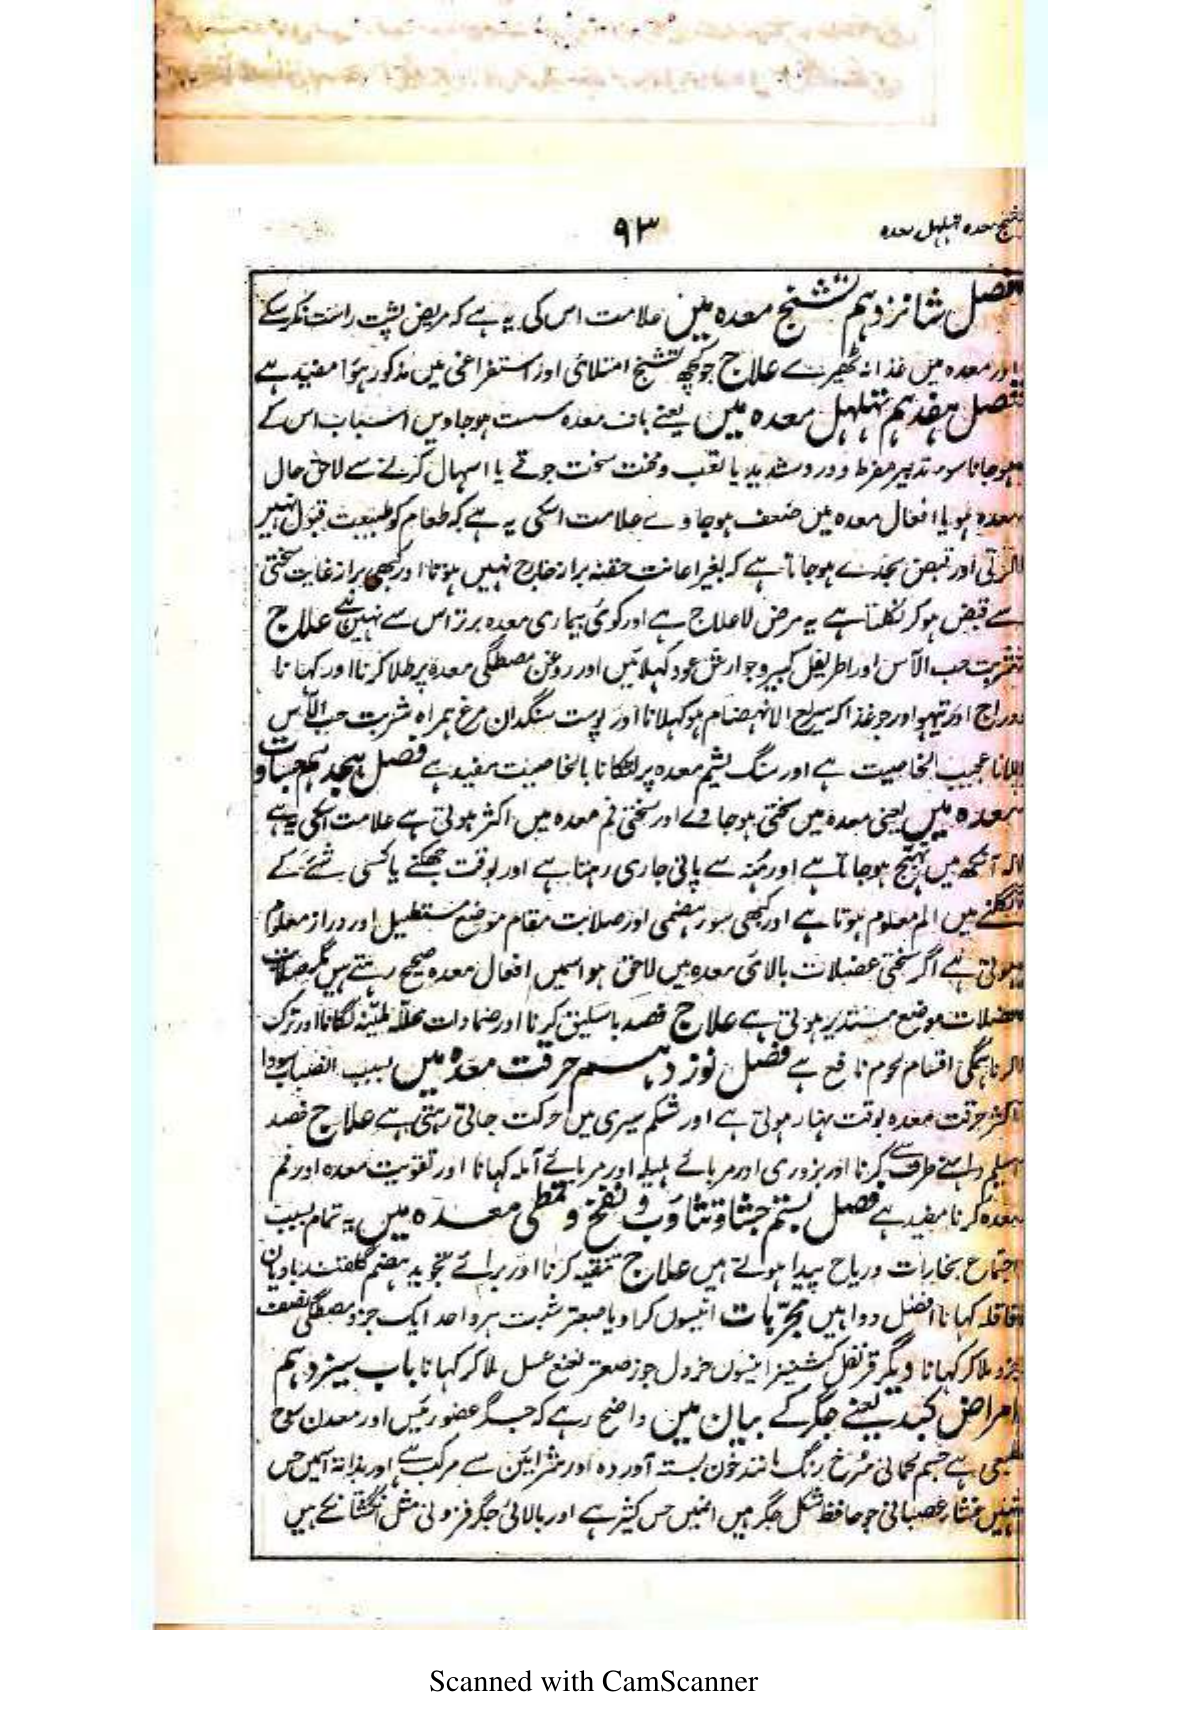 تشنج معدہ تہلہل معدہ
۹۳
فصل شانزدہم تشنج معدہ میں علامت اس کی یہ ہے کہ مریض پشت راست نکرسکے
اور معدہ میں غذا نہ ٹھیرے علاج جو کچھ تشنج امتلائی اور استفراغی میں مذکور ہوا مفید ہے
فصل ہفدہم تہلہل معدہ میں یعنے باف معدہ سست ہوجاویں اسباب اس کے
ہوجانا سوء تدبیر مفرط و درد شدید یا تعب و محنت سخت جوتے یا اسہال کرنے سے لاحق حال
معدہ ہو یا افعال معدہ میں ضعف ہوجاوے علامت اسکی یہ ہے کہ طعام کو طبیعت قبول نہیں
کرتی اور قبض بحدے ہوجاتا ہے کہ بغیر اعانت حقنہ براز خارج نہیں ہوتا اور کبھی براز غایت سختی
سے قبض ہوکر نکلتا ہے یہ مرض لاعلاج ہے اور کوئی بیماری معدہ بدتر اس سے نہیں ہے علاج
شربت حب الآس اور اطریفل کبیر و جوارش عود کہلائیں اور روغن مصطگی معدہ پر طلا کرنا اور کہانا
دراج اور تیہو اور جو غذا کہ سریع الانہضام ہو کہلانا اور پوست سنگدان مرغ ہمراہ شربت حب الآس
پلانا عجیب الخاصیت ہے اور سنگ یشم معدہ پر لٹکانا بالخاصیت مفید ہے فصل ہیجدہم جساوت
معدہ میں یعنی معدہ میں سختی ہوجاوے اور سختی فم معدہ میں اکثر ہوتی ہے علامت اسکی یہ ہے
کہ آنکھ میں تہیج ہوجاتا ہے اور مُنہ سے پانی جاری رہتا ہے اور بوقت جھکنے یا کسی شئے کے
نگلنے میں الم معلوم ہوتا ہے اور کبھی سوء ہضمی اور صلابت مقام موضع مستطیل اور دراز معلوم
ہوتی ہے اگر سختی عضلات بالائی معدہ میں لاحق ہو اسمیں افعال معدہ صحیح رہتے ہیں مگر صلابت
عضلات موضع مستدیر ہوتی ہے علاج فصد باسلیق کرنا اور ضمادات محللہ ملینہ لگانا اور ترک
کرنا ہمگی اقسام لحوم نافع ہے فصل نوزدہم حرقت معدہ میں بسبب انصباب سودا
اکثر حرقت معدہ بوقت نہار ہوتی ہے اور شکم سیری میں حرکت جاتی رہتی ہے علاج فصد
اسیلم داہنے طرف سے کرنا اور بزوری اور مربائے ہلیلہ اور مربائے آملہ کہانا اور تقویت معدہ اور فم
معدہ کرنا مفید ہے فصل بستم جشاؤ تثاوب و نفخ و تمطی معدہ میں یہ تمام بسبب
اجتماع بخارات و ریاح پیدا ہوتے ہیں علاج تنقیہ کرنا اور برائے تجوید ہضم گلقند بادیان
قاقلہ کہانا افضل دوا ہیں مجربات انیسوں کراویا صعتر شبت ہر واحد ایک جزو مصطگی نصف
جزو ملاکر کہانا دیگر قرنفل کشنیز انیسوں خردل جوز صعتر نعنع عسل ملا کر کہانا باب سیزدہم
امراض کبد یعنے جگر کے بیان میں واضح رہے کہ جگر عضو رئیس اور معدن روح
طبیعی ہے جسم لحمانی سُرخ رنگ مانند خون بستہ آوردہ اور شرائین سے مرکب ہے اور بذاتہ اسمیں حس
نہیں غشاء عصبانی جو حافظ شکل جگر ہیں انہیں حس کثیر ہے اور بالائی جگر فزونی مثل انگشتانکے ہیں
Scanned with CamScanner